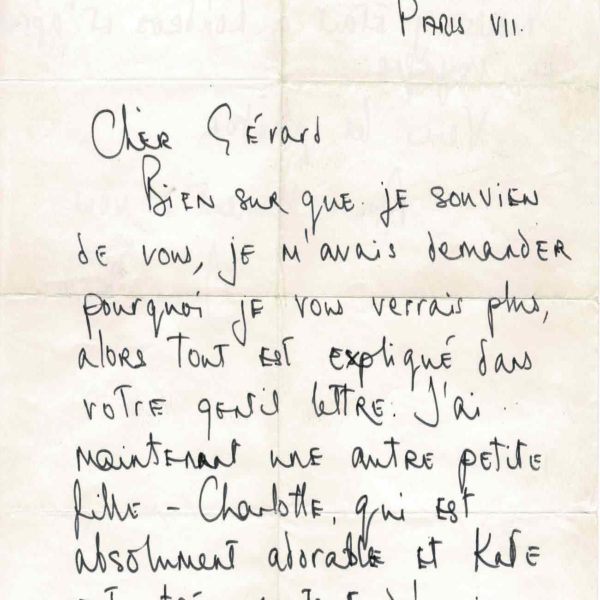 PARIS VII.
Cher Gérard
Bien sur que je souvien
de vous, je m'avais demander
pourquoi je vous verrais plus,
alors tout est expliqué dans
votre gentil lettre. J'ai
maintenant une autre petite
fille - Charlotte, qui est
absolument adorable et Kate